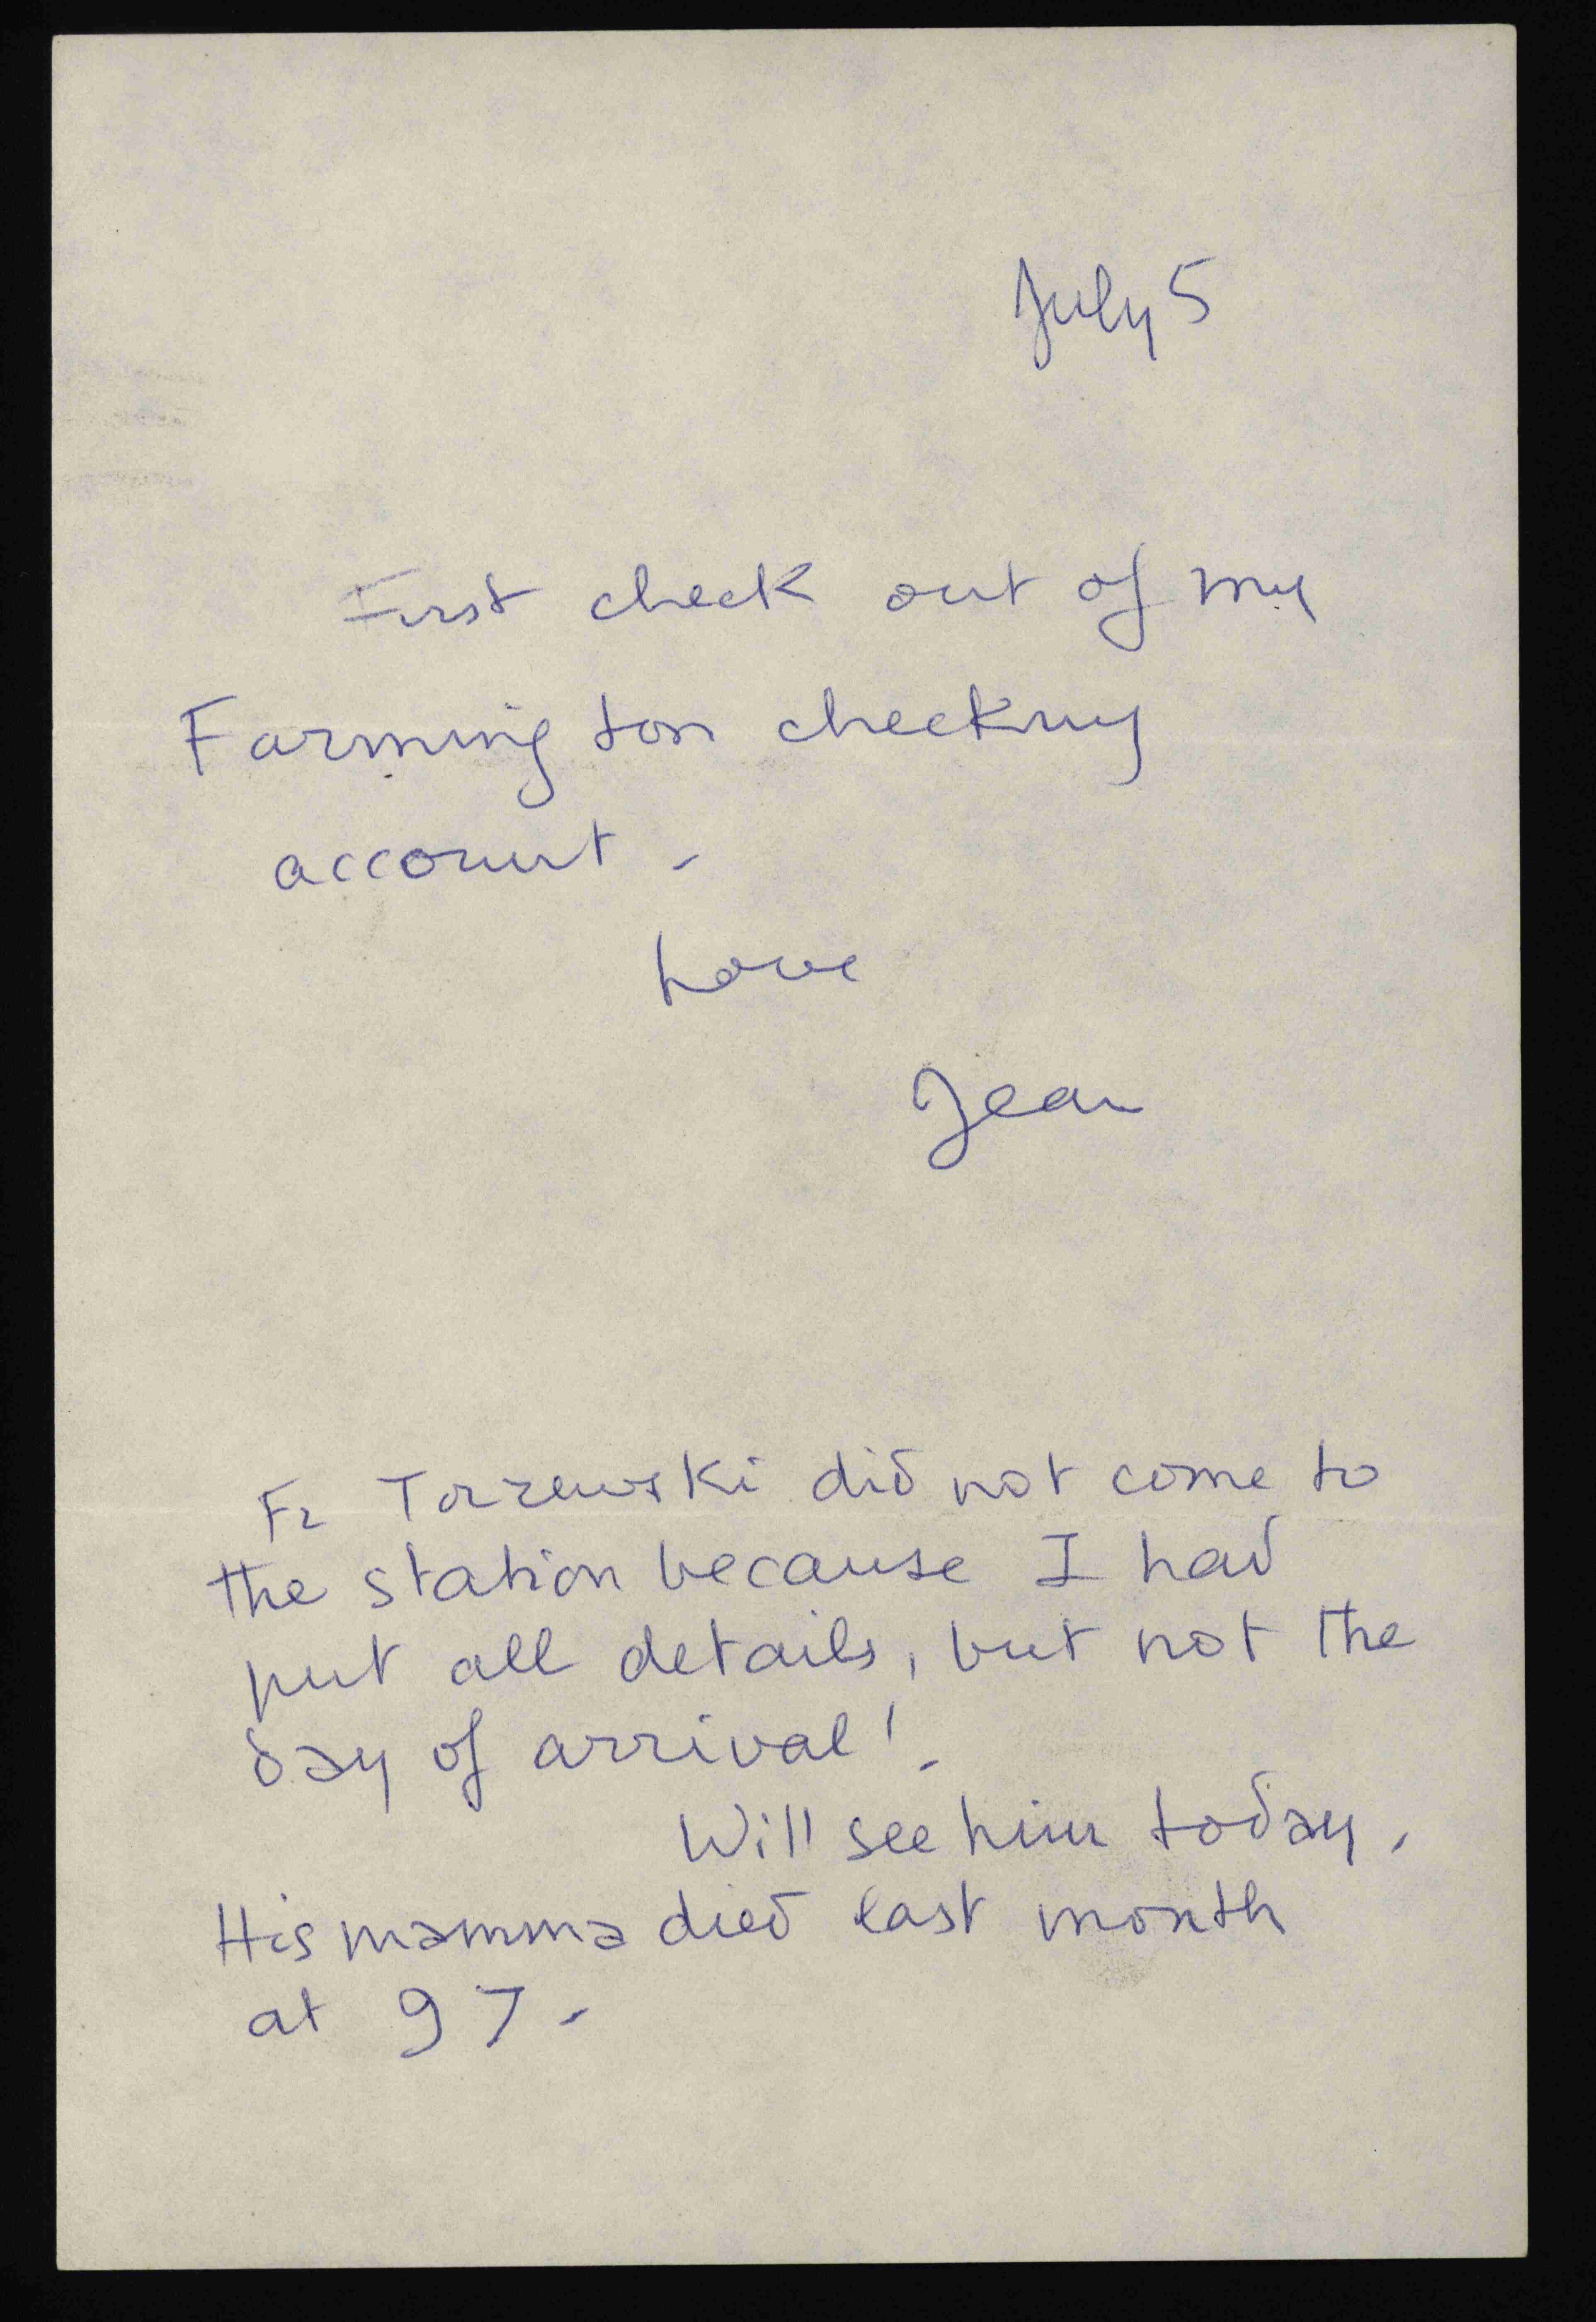 July 5
First check out of my
Farmington checking
account -
Love
Jean
Fr Torzewski did not come to
the station because I had
put all details, but not the
day of arrival!
Will see him today.
His mamma died last month
at 97.